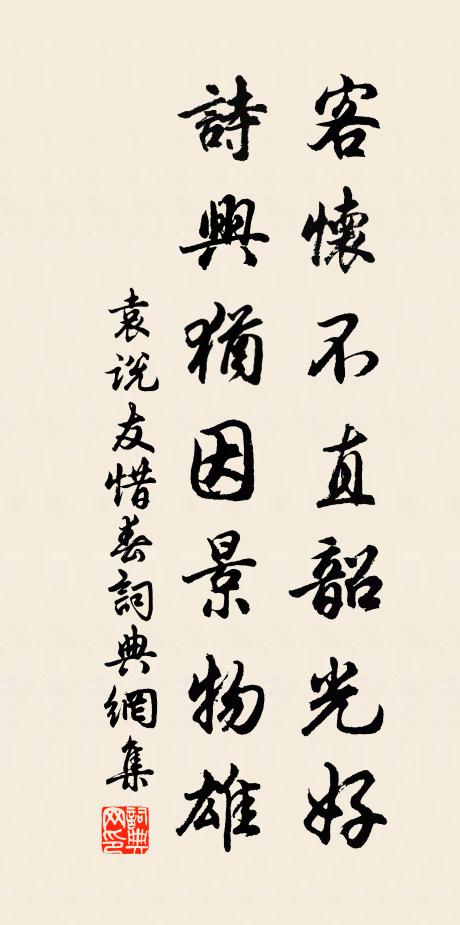 客懷不直韶光好
詩興猶因景物雄
袁说友惜春詞典網集
詞典網印